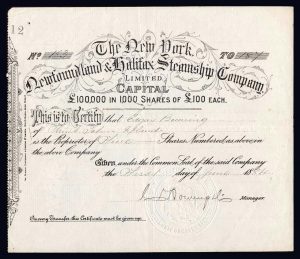 12
No
TO
The New York
Newfoundland & Halifax Steamship Company
LIMITED.
CAPITAL
£100,000 IN 1000 SHARES OF £100 EACH.
This is to Certify that
of
is the Proprietor of Shares Numbered as above in
the above Company
Given under the Common Seal of the said Company
the day of June 18
Manager
On every Transfer this Certificate must be given up.